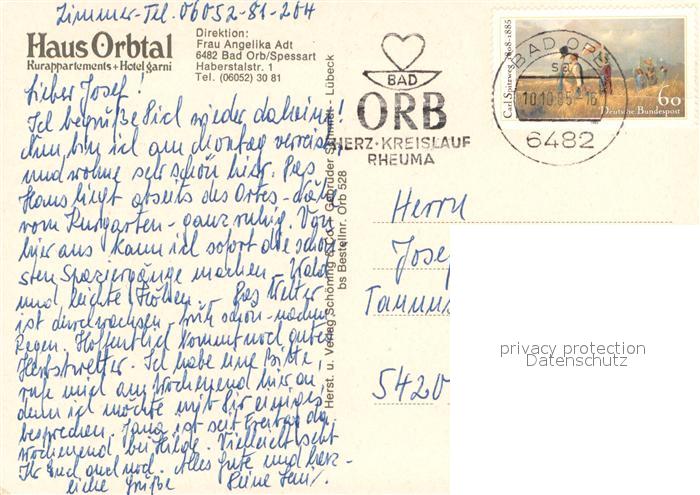 Zimmer-Tel. 06052-81-204
Haus Orbtal
Kurappartements + Hotel garni
Direktion:
Frau Angelika Adt
6482 Bad Orb/Spessart
Haberstalstr. 1
Tel. (06052) 30 81
Lieber Josef!
Ich begrüße Dich wieder daheim!
Nun bin ich am Montag verreist
und wohne sehr schön hier. Das
Haus liegt abseits des Ortes - Nähe
vom Kurgarten - ganz ruhig. Von
hier aus kann ich sofort die schön-
sten Spaziergänge machen - Wald
und leichte Höhen. Das Wetter
ist durchwachsen - früh schön - nachm.
Regen. Hoffentlich kommt noch gutes
Herbstwetter. Ich habe eine Bitte,
rufe mich am Wochenend hier an,
denn ich möchte mit Dir einiges
besprechen. ist seit Freitag
Wochenend bei Hilde. Vielleicht seht
Ihr Euch auch noch. Alles Gute und herz-
liche Grüße Deine
Herst. u. Verlag Schöning & Co. + Gebrüder Schmidt - Lübeck
bs Bestellnr. Orb 528
BAD
ORB
HERZ·KREISLAUF
RHEUMA
BAD ORB
10.10.85-16
6482
Carl Spitzweg 1808-1885
60
Deutsche Bundespost
Herrn
Josef
Taunus
5420
privacy protection
Datenschutz